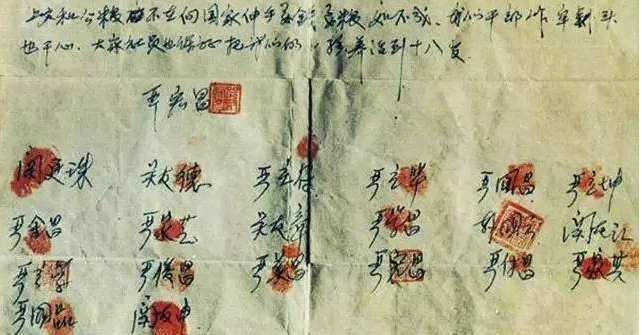 上交和公粮 不在向国家伸手要钱要粮 如不成 我们干部作牢刹头
也干心 大家社员也保证把我们的小孩养活到十八岁
严宏昌
关廷珠 关友德 严立符 严立华 严国昌 严立坤
严金昌 严家芝 关友章 严学昌 韩国云 关友江
严立学 严俊昌 严美昌 严宏昌 严付昌 严家其
严国品 关友申